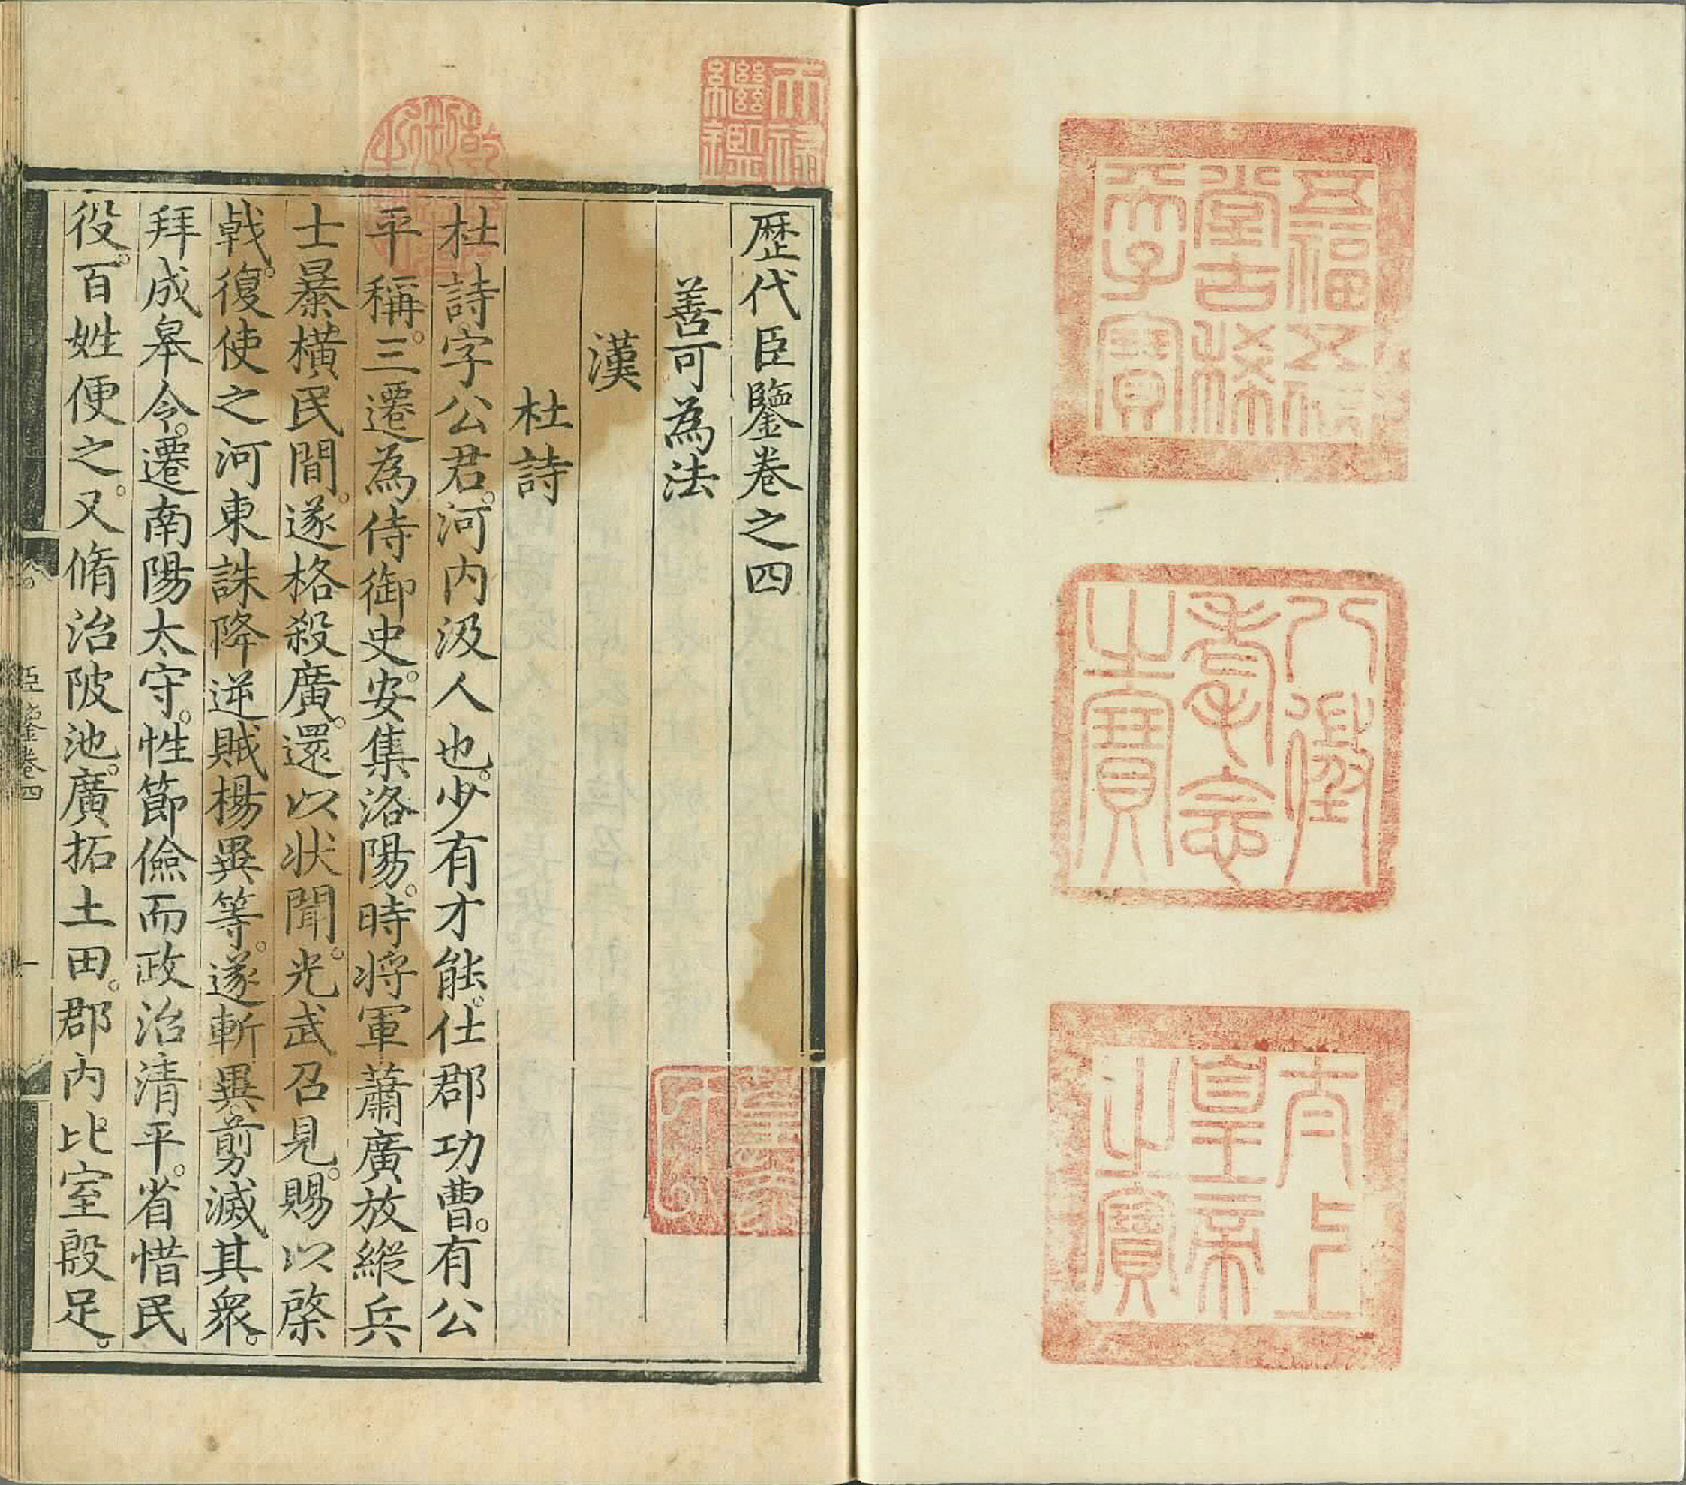 五福五代
堂古稀
天子寶
八徵
耄念
之寶
太上
皇帝
之寶
天祿
繼鑑
乾隆
御覽
之寶
歷代臣鑒卷之四
善可為法
漢
杜詩
杜詩字公君。河內汲人也。少有才能。仕郡功曹。有公
平稱。三遷為侍御史。安集洛陽。時将軍蕭廣放縱兵
士暴橫民間。遂格殺廣。還以狀聞。光武召見。賜以棨
戟。復使之河東誅降逆賊楊異等。遂斬異剪滅其衆。
拜成皋令。遷南陽太守。性節儉而政治清平。省惜民
役。百姓便之。又脩治陂池。廣拓土田。郡內比室殷足。
臣鑒卷四 一